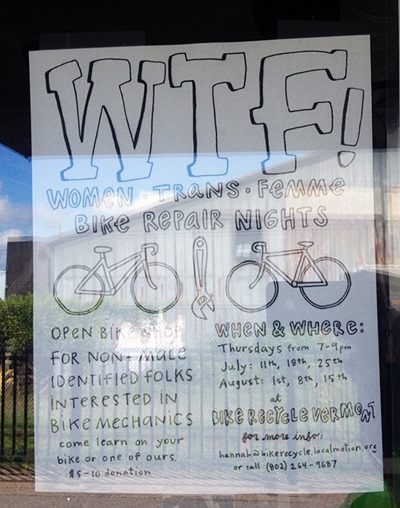 WTF!
WOMEN • TRANS • FEMME
BIKE REPAIR NIGHTS
OPEN BIKE SHOP
FOR NON-MALE
IDENTIFIED FOLKS
INTERESTED IN
BIKE MECHANICS
come learn on your
bike or one of ours.
$5-10 donation
WHEN & WHERE:
Thursdays from 7-9pm
July: 11th, 18th, 25th
August: 1st, 8th, 15th
at
BIKE RECYCLE VERMONT
for more info:
hannah@bikerecycle.localmotion.org
or call (802) 264-9687